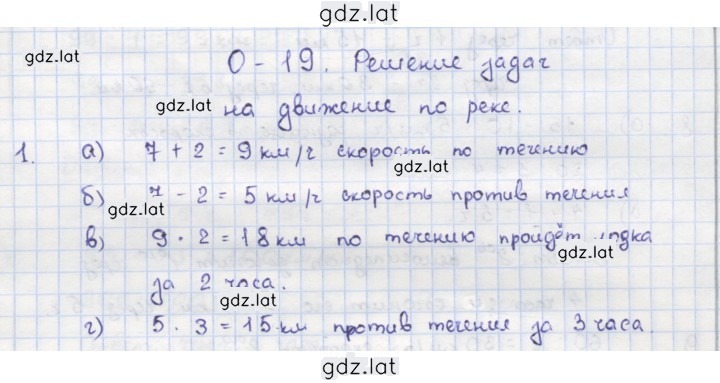 gdz.lat
gdz.lat
О - 19. Решение задач
gdz.lat
на движение по реке.
1. а) 7 + 2 = 9 км/ч скорость по течению
gdz.lat
б) 7 - 2 = 5 км/ч скорость против течения
gdz.lat
в) 9 · 2 = 18 км по течению пройдёт лодка
gdz.lat
за 2 часа.
gdz.lat
г) 5 · 3 = 15 км против течения за 3 часа.
gdz.lat